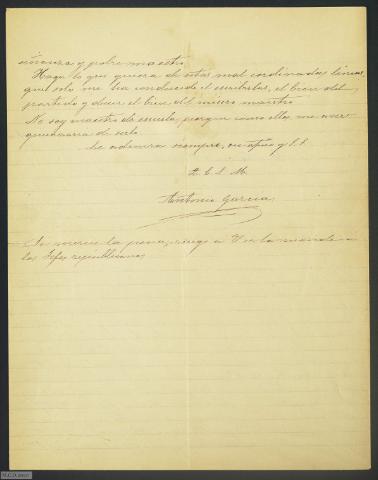 señanza y pobre maestro.
Haga lo que quiera de estas mal cordinadas lineas,
que solo me ha conducido el escribirlas, el bien del
partido y decir el bien del mísero maestro
No soy maestro de escuela, porque como ellos me aver-
guenzaria de serlo.
Le admira siempre, su afmo y S.S.
q. b. s. M.
Antonio García
Si merece la pena, ruego a V. se la mande a
los Jefes republicanos